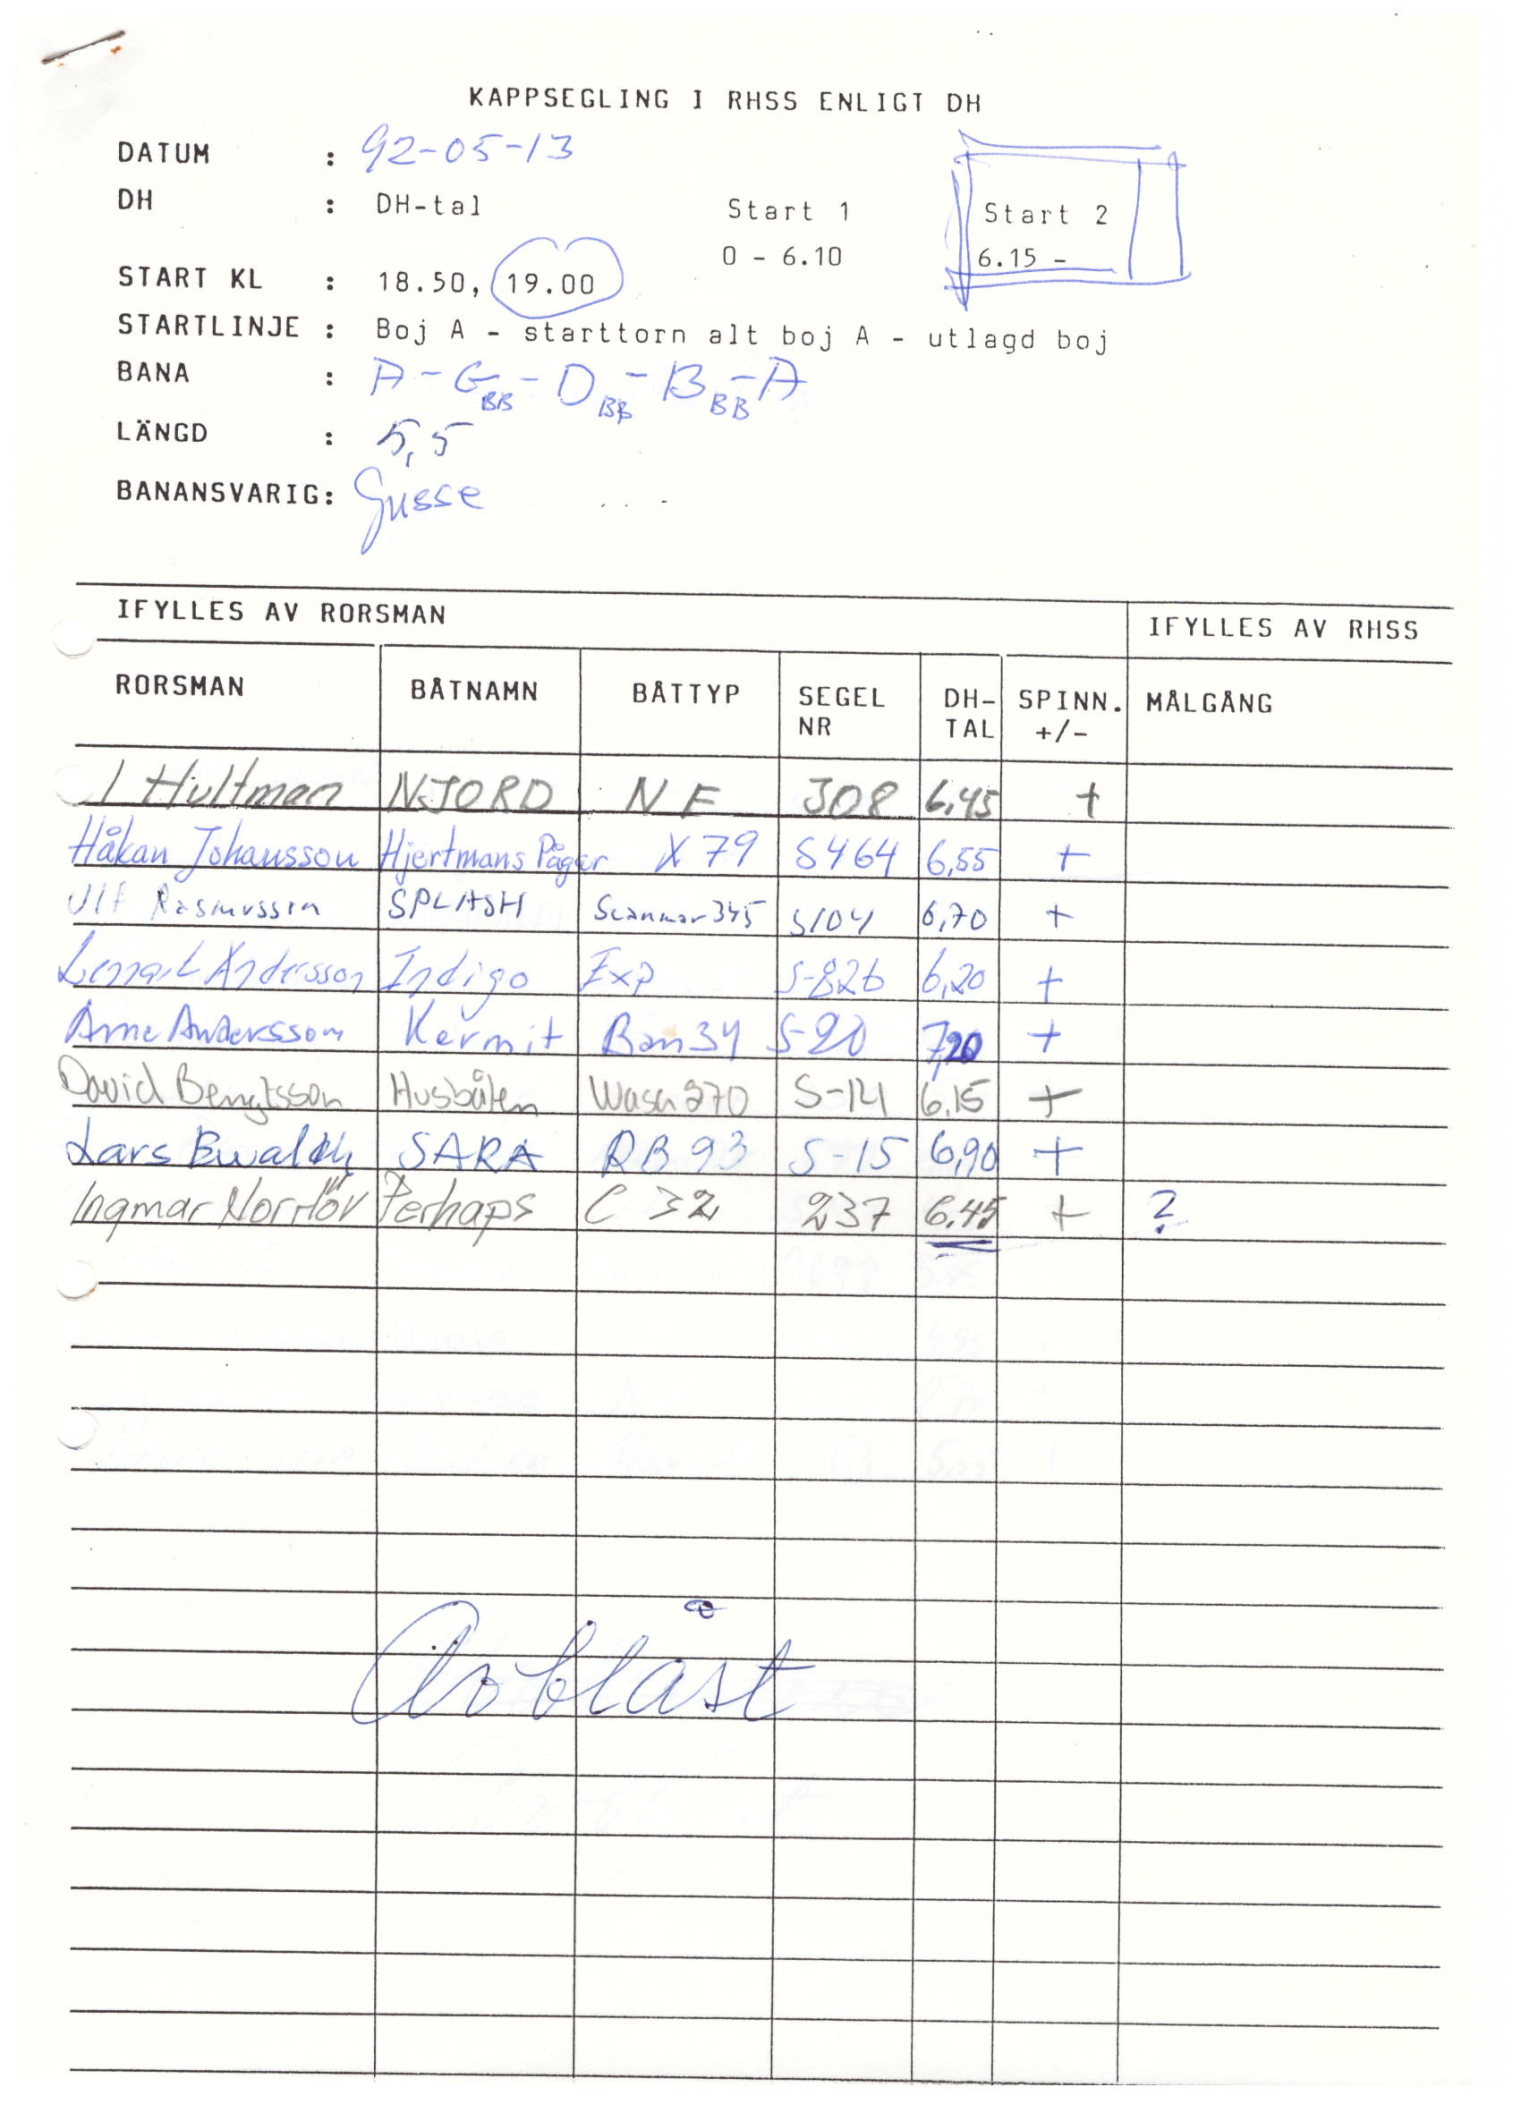 KAPPSEGLING I RHSS ENLIGT DH
DATUM : 92-05-13
DH : DH-tal Start 1 Start 2
0 - 6.10 6.15 -
START KL : 18.50, 19.00
STARTLINJE : Boj A - starttorn alt boj A - utlagd boj
BANA : A - G BB - D BB - B BB - A
LÄNGD : 5,5
BANANSVARIG: Gusse
IFYLLES AV RORSMAN IFYLLES AV RHSS
RORSMAN BÅTNAMN BÅTTYP SEGEL NR DH-TAL SPINN. +/- MÅLGÅNG
I Hultman NJORD NF 308 6,45 +
Håkan Johansson Hjertmans Pågar X 79 S464 6,55 +
Ulf Rasmusson SPLASH Scanmar 345 S104 6,70 +
Lennart Andersson Indigo Exp S-826 6,20 +
Arne Andersson Kermit Ban 34 S-20 7,20 +
David Bengtsson Husbåten Wasa 370 S-141 6,15 +
Lars SARA RB 93 S-15 6,90 +
Ingmar Norrlöv Perhaps C 32 237 6,45 + ?
Avblåst